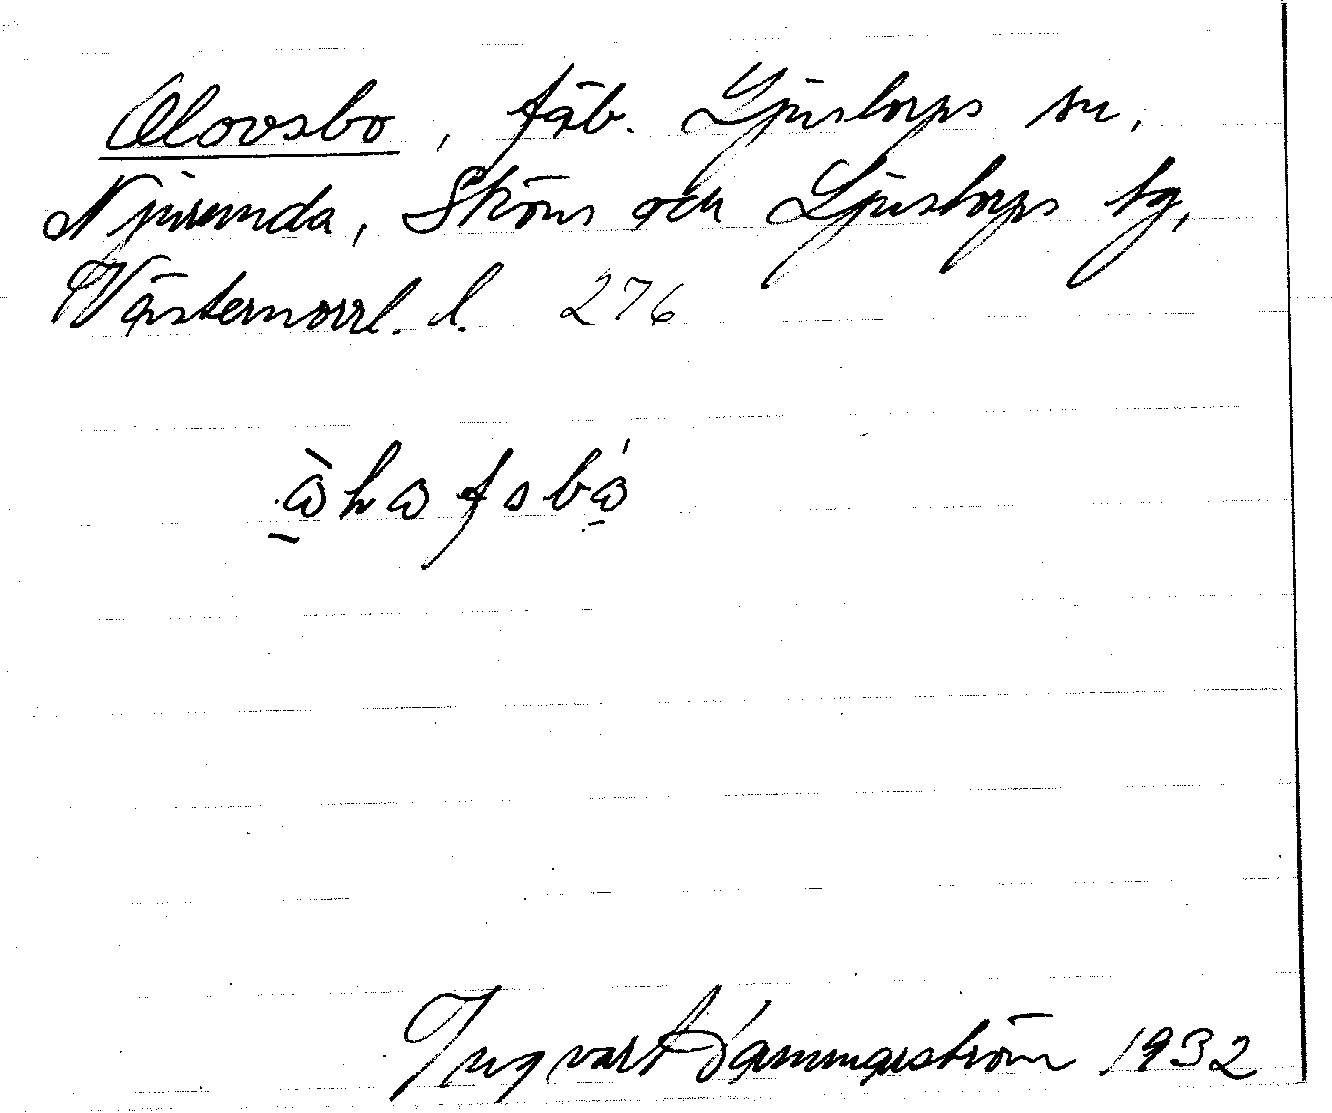 Olovsbo, fäb. Ljustorps sn,
Njurunda, Sköns och Ljustorps tg,
Västernorrl. l. 276
Ingvar 1932